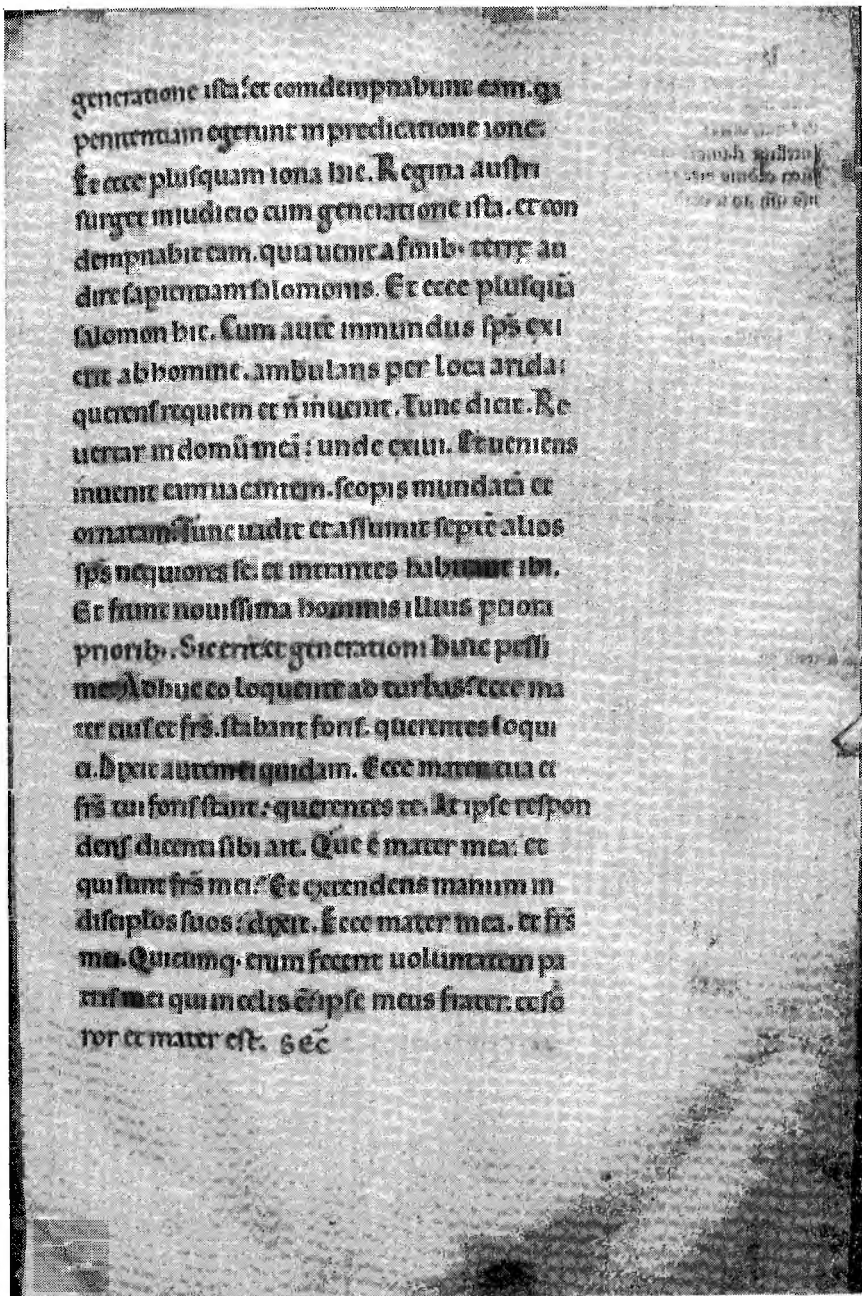 generatione ista: et comdempnabunt eam. qa
penitentiam egerunt in predicatione ione:
Et ecce plusquam iona hic. Regina austri
surget iniudicio cum generatione ista. et con
dempnabit eam. quia uenit a finib. terre au
dire sapientiam salomonis. Et ecce plusquā
salomon hic. Cum autē inmundus sps̄ exi
erit ab homine. ambulans per loca arida:
querens requiem et n̄ inuenit. Tunc dicit. Re
uertar in domū meā: unde exiui. Et ueniens
inuenit eam uacantem. scopis mundatā et
ornatam. Tunc uadit et assumit septē alios
sps̄ nequiores se. et intrantes habitant ibi.
Et fiunt nouissima hominis illius peiora
priorib. Sic erit et generationi huic pessi
me. Adhuc eo loquente ad turbas: ecce ma
ter eius et frs̄. stabant foris. querentes loqui
ei. Dixit autem ei quidam. Ecce mater tua et
frs̄ tui foris stant: querentes te. At ipse respon
dens dicenti sibi ait. Que ē mater mea: et
qui sunt frs̄ mei? Et extendens manum in
discipłos suos: dixit. Ecce mater mea. et frs̄
mei. Quicumq. enim fecerit uoluntatem pa
tris mei qui in celis ē: ipse meus frater. et so
ror et mater est. sec̄